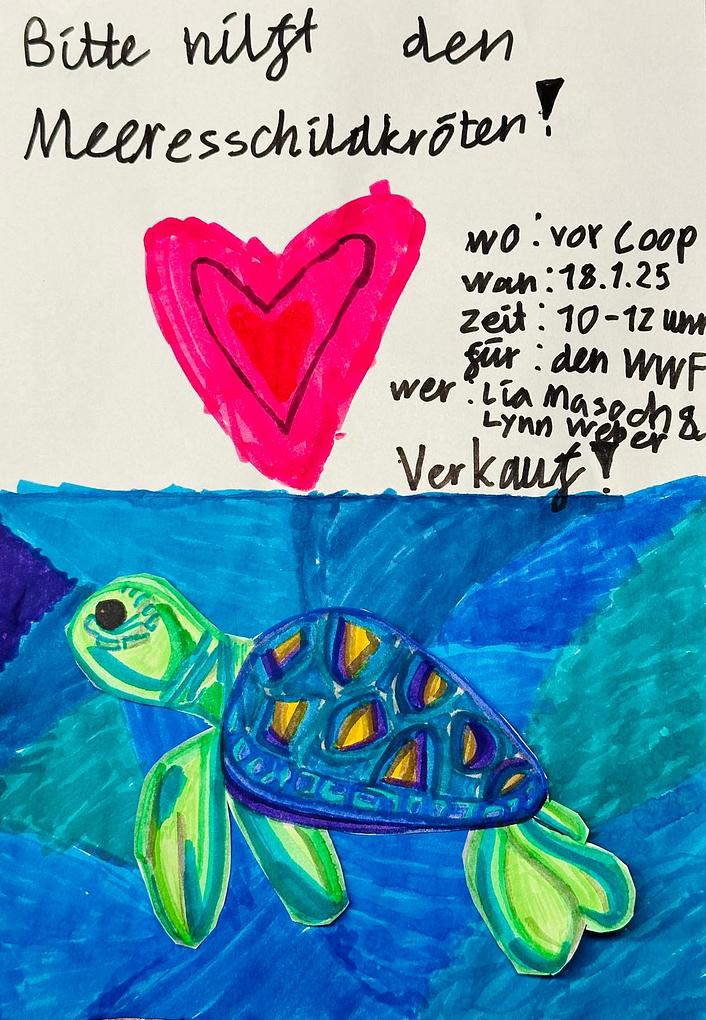 Bitte hilft den
Meeresschildkröten!
wo: vor Coop
wan: 18.1.25
zeit: 10-12 uhr
für: den WWF
wer: Lia Masoch &
Lynn Weber
Verkauf!